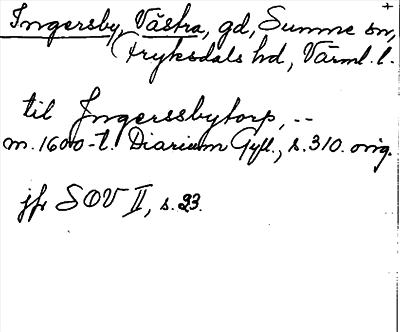 Ingersby, Västra, gd, Sunne sn, +
Fryksdals hd, Värml. l.
til Jngerssbytorp, --
m. 1600-t. Diarium Gyll., s. 310. orig.
jfr SOV II, s. 23.